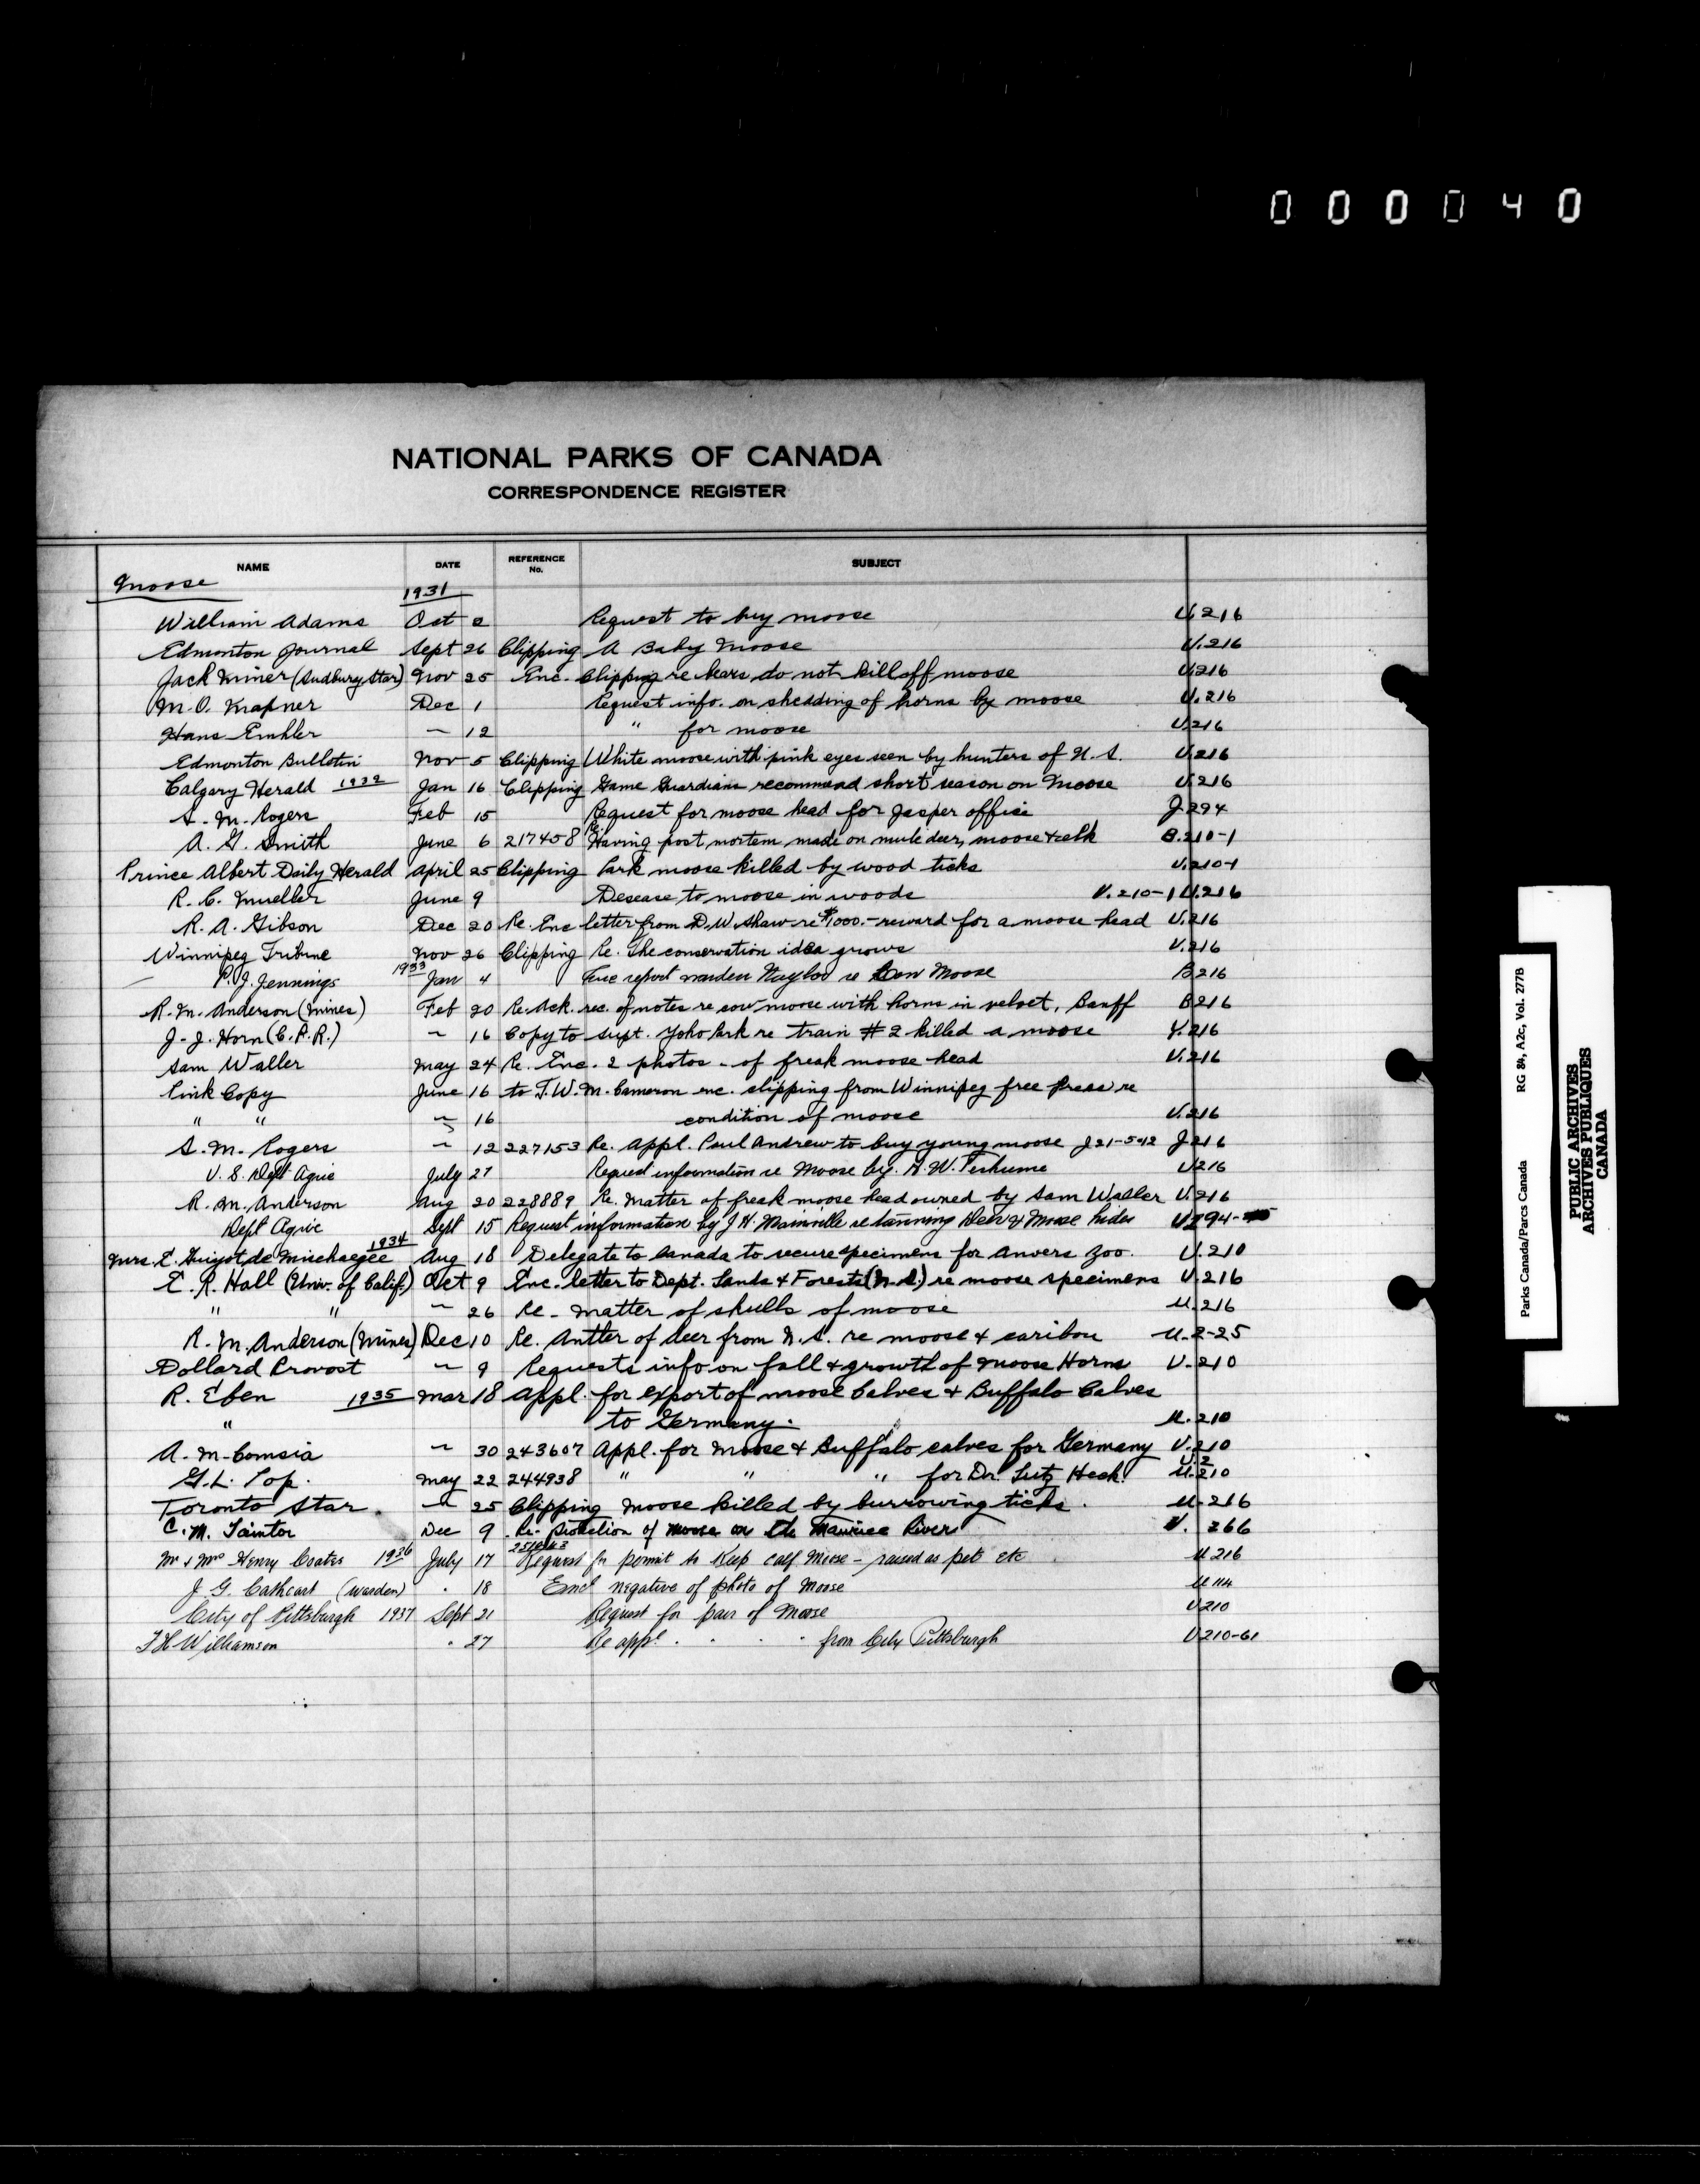 000040
NATIONAL PARKS OF CANADA
CORRESPONDENCE REGISTER
NAME DATE REFERENCE No. SUBJECT
Moose 1931
William Adams Oct 2 Request to buy moose U.216
Edmonton Journal Sept 26 Clipping A Baby Moose U.216
Jack Miner (Sudbury Star) Nov 25 Enc. Clipping re bears do not kill off moose U.216
M.O. Krapner Dec 1 Request info. on shedding of horns by moose U.216
Hans — 12 " for moose U.216
Edmonton Bulletin Nov 5 Clipping White moose with pink eyes seen by hunters of N.S. U.216
Calgary Herald 1932 Jan 16 Clipping Game Guardians recommend short season on Moose U.216
S. M. Rogers Feb 15 Request for moose head for Jasper office J.294
A. G. Smith June 6 217458 Re: Having post mortem made on mule deer, moose & elk B.210-1
Prince Albert Daily Herald April 25 Clipping Park moose killed by wood ticks U.210-1
R. C. Mueller June 9 Desease to moose in woods U.210-1 U.216
R. A. Gibson Dec 20 Re. Enc letter from D.W. Shaw re $1000.- reward for a moose head U.216
Winnipeg Tribune Nov 26 Clipping Re. The conservation idea grows U.216
P.J. Jennings 1933 Jan 4 Enc report warden Naylor re Cow Moose B216
R. M. Anderson (Mines) Feb 20 Re. Ack. rec. of notes re cow moose with horns in velvet, Banff B216
J. J. Horn (C.P.R.) — 16 Copy to supt. Yoho Park re train #2 killed a moose Y.216
Sam Waller May 24 Re. Enc. 2 photos - of freak moose head U.216
Pink Copy June 16 to T.W.M. Cameron enc. clipping from Winnipeg free Press re
" " — 16 condition of moose U.216
S. M. Rogers — 12 227153 Re. Appl. Paul Andrew to buy young moose J21-542 J216
U. S. Dept Agric July 27 Request information re Moose by A. W. U216
R. M. Anderson Aug 20 228889 Re. Matter of freak moose head owned by Sam Waller U.216
Dept Agric Sept 15 Request information by J H. Mainville re tanning Deer & Moose hides U294-
Mrs. E. Guyot de Mischaegee 1934 Aug 18 Delegate to Canada to secure specimens for Anvers Zoo. U.210
E. R. Hall (Univ. of Calif.) Oct 9 Enc. letter to Dept. Lands & Forests (N.S.) re moose specimens U.216
" " — 26 Re - matter of skulls of moose U.216
R. M. Anderson (Mines) Dec 10 Re. Antler of deer from N.S. re moose & caribou U.2-25
Dollard Provost — 9 Requests info on fall & growth of Moose Horns U.210
R. Eben 1935 Mar 18 Appl. for export of moose Calves & Buffalo Calves
" to Germany. U.210
A. M. Comsia — 30 243607 Appl. for Moose & Buffalo calves for Germany U.210
G.L. Pop. May 22 244938 " " " for Dr. Lutz Heck. U.2 U.210
Toronto Star. — 25 Clipping Moose killed by burrowing ticks. U.216
C. M. Taintor Dec 9 Re- Protection of moose on the Maurice River U. 266
Mr & Mrs Henry Coates 1936 July 17 Request for permit to Keep calf Moose - raised as pet etc U 216
J. G. Cathcart (Warden) " 18 Encl negative of photo of Moose U 114
City of Pittsburgh 1937 Sept 21 Request for pair of Moose U 210
F H Williamson " 27 Re appl. " " " " from City Pittsburgh U 210-61
Parks Canada/Parcs Canada RG 84, A2c, Vol. 2778
PUBLIC ARCHIVES
ARCHIVES PUBLIQUES
CANADA